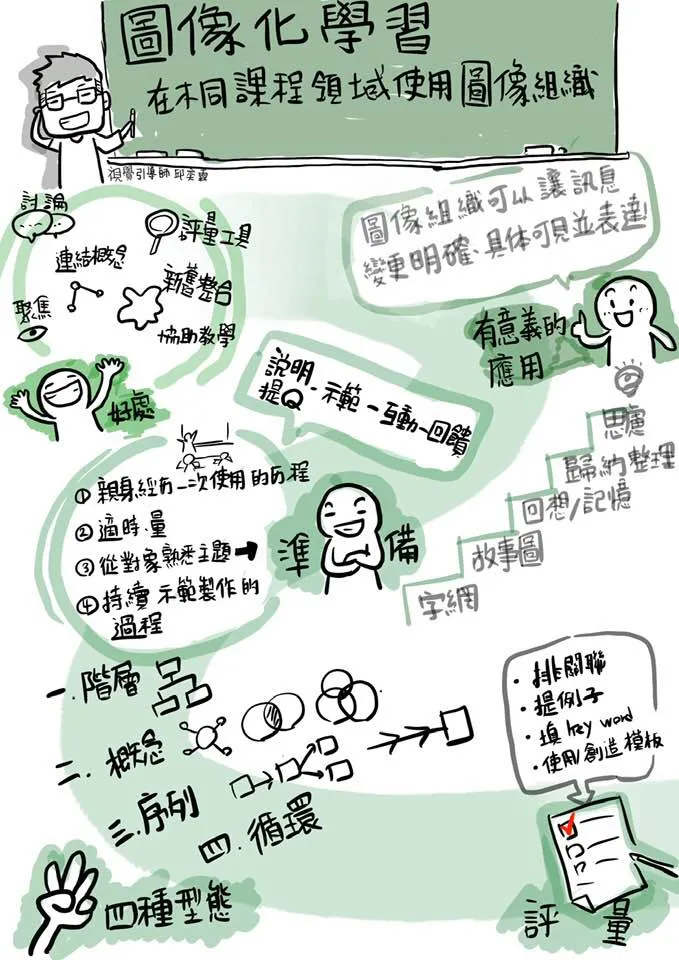 圖像化學習
在不同課程領域使用圖像組織
視覺引導師 邱奕霖
討論
評量工具
連結概念
新舊整合
聚焦
協助教學
好處
圖像組織可以讓訊息
變更明確、具体可見並表達!
有意義的
應用
說明、示範-互動-回饋
提Q
①親身經歷一次使用的历程
②適時.量
③從對象熟悉主題
④持續示範製作的
過程
準備
思慮
歸納整理
回想/記憶
故事圖
字網
一.階層
二.概念
三.序列
四.循環
四種型態
·排關聯
·提例子
·填key word
·使用/創造模板
評量